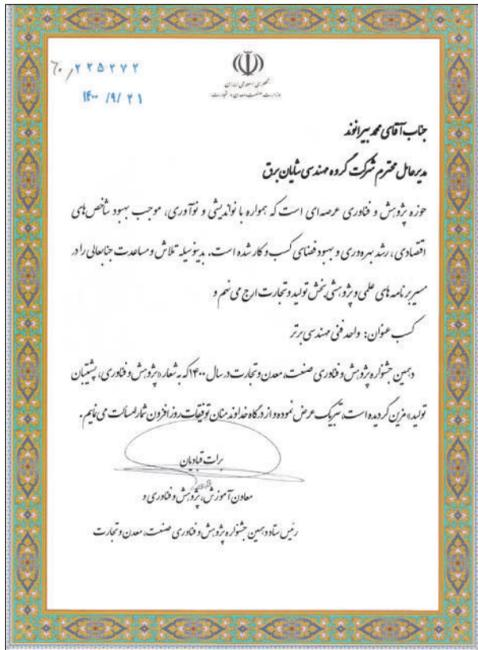 ۶۰/۲۲۵۲۷۲
۱۴۰۰/۹/۲۱
جمهوری اسلامی ایران
وزارت صنعت، معدن و تجارت
جناب آقای محمد بیرانوند
مدیرعامل محترم شرکت گروه مهندسی شایان برق
حوزه پژوهش و فناوری عرصه‌ای است که همواره با نواندیشی و نوآوری، موجب بهبود شاخص‌های
اقتصادی، رشد بهره‌وری و بهبود فضای کسب و کار شده است. بدینوسیله تلاش و مساعدت جنابعالی را در
مسیر برنامه‌های علمی و پژوهشی بخش تولید و تجارت ارج می‌نهم و
کسب عنوان: واحد فنی مهندسی برتر
دهمین جشنواره پژوهش و فناوری صنعت، معدن و تجارت در سال ۱۴۰۰ که به شعار «پژوهش و فناوری، پشتیبان
تولید» مزین گردیده است، تبریک عرض نموده و از درگاه خداوند منان توفیقات روزافزون شما را مسألت می‌نمایم.
برات قبادیان
معاون آموزش، پژوهش و فناوری و
رئیس ستاد دهمین جشنواره پژوهش و فناوری صنعت، معدن و تجارت